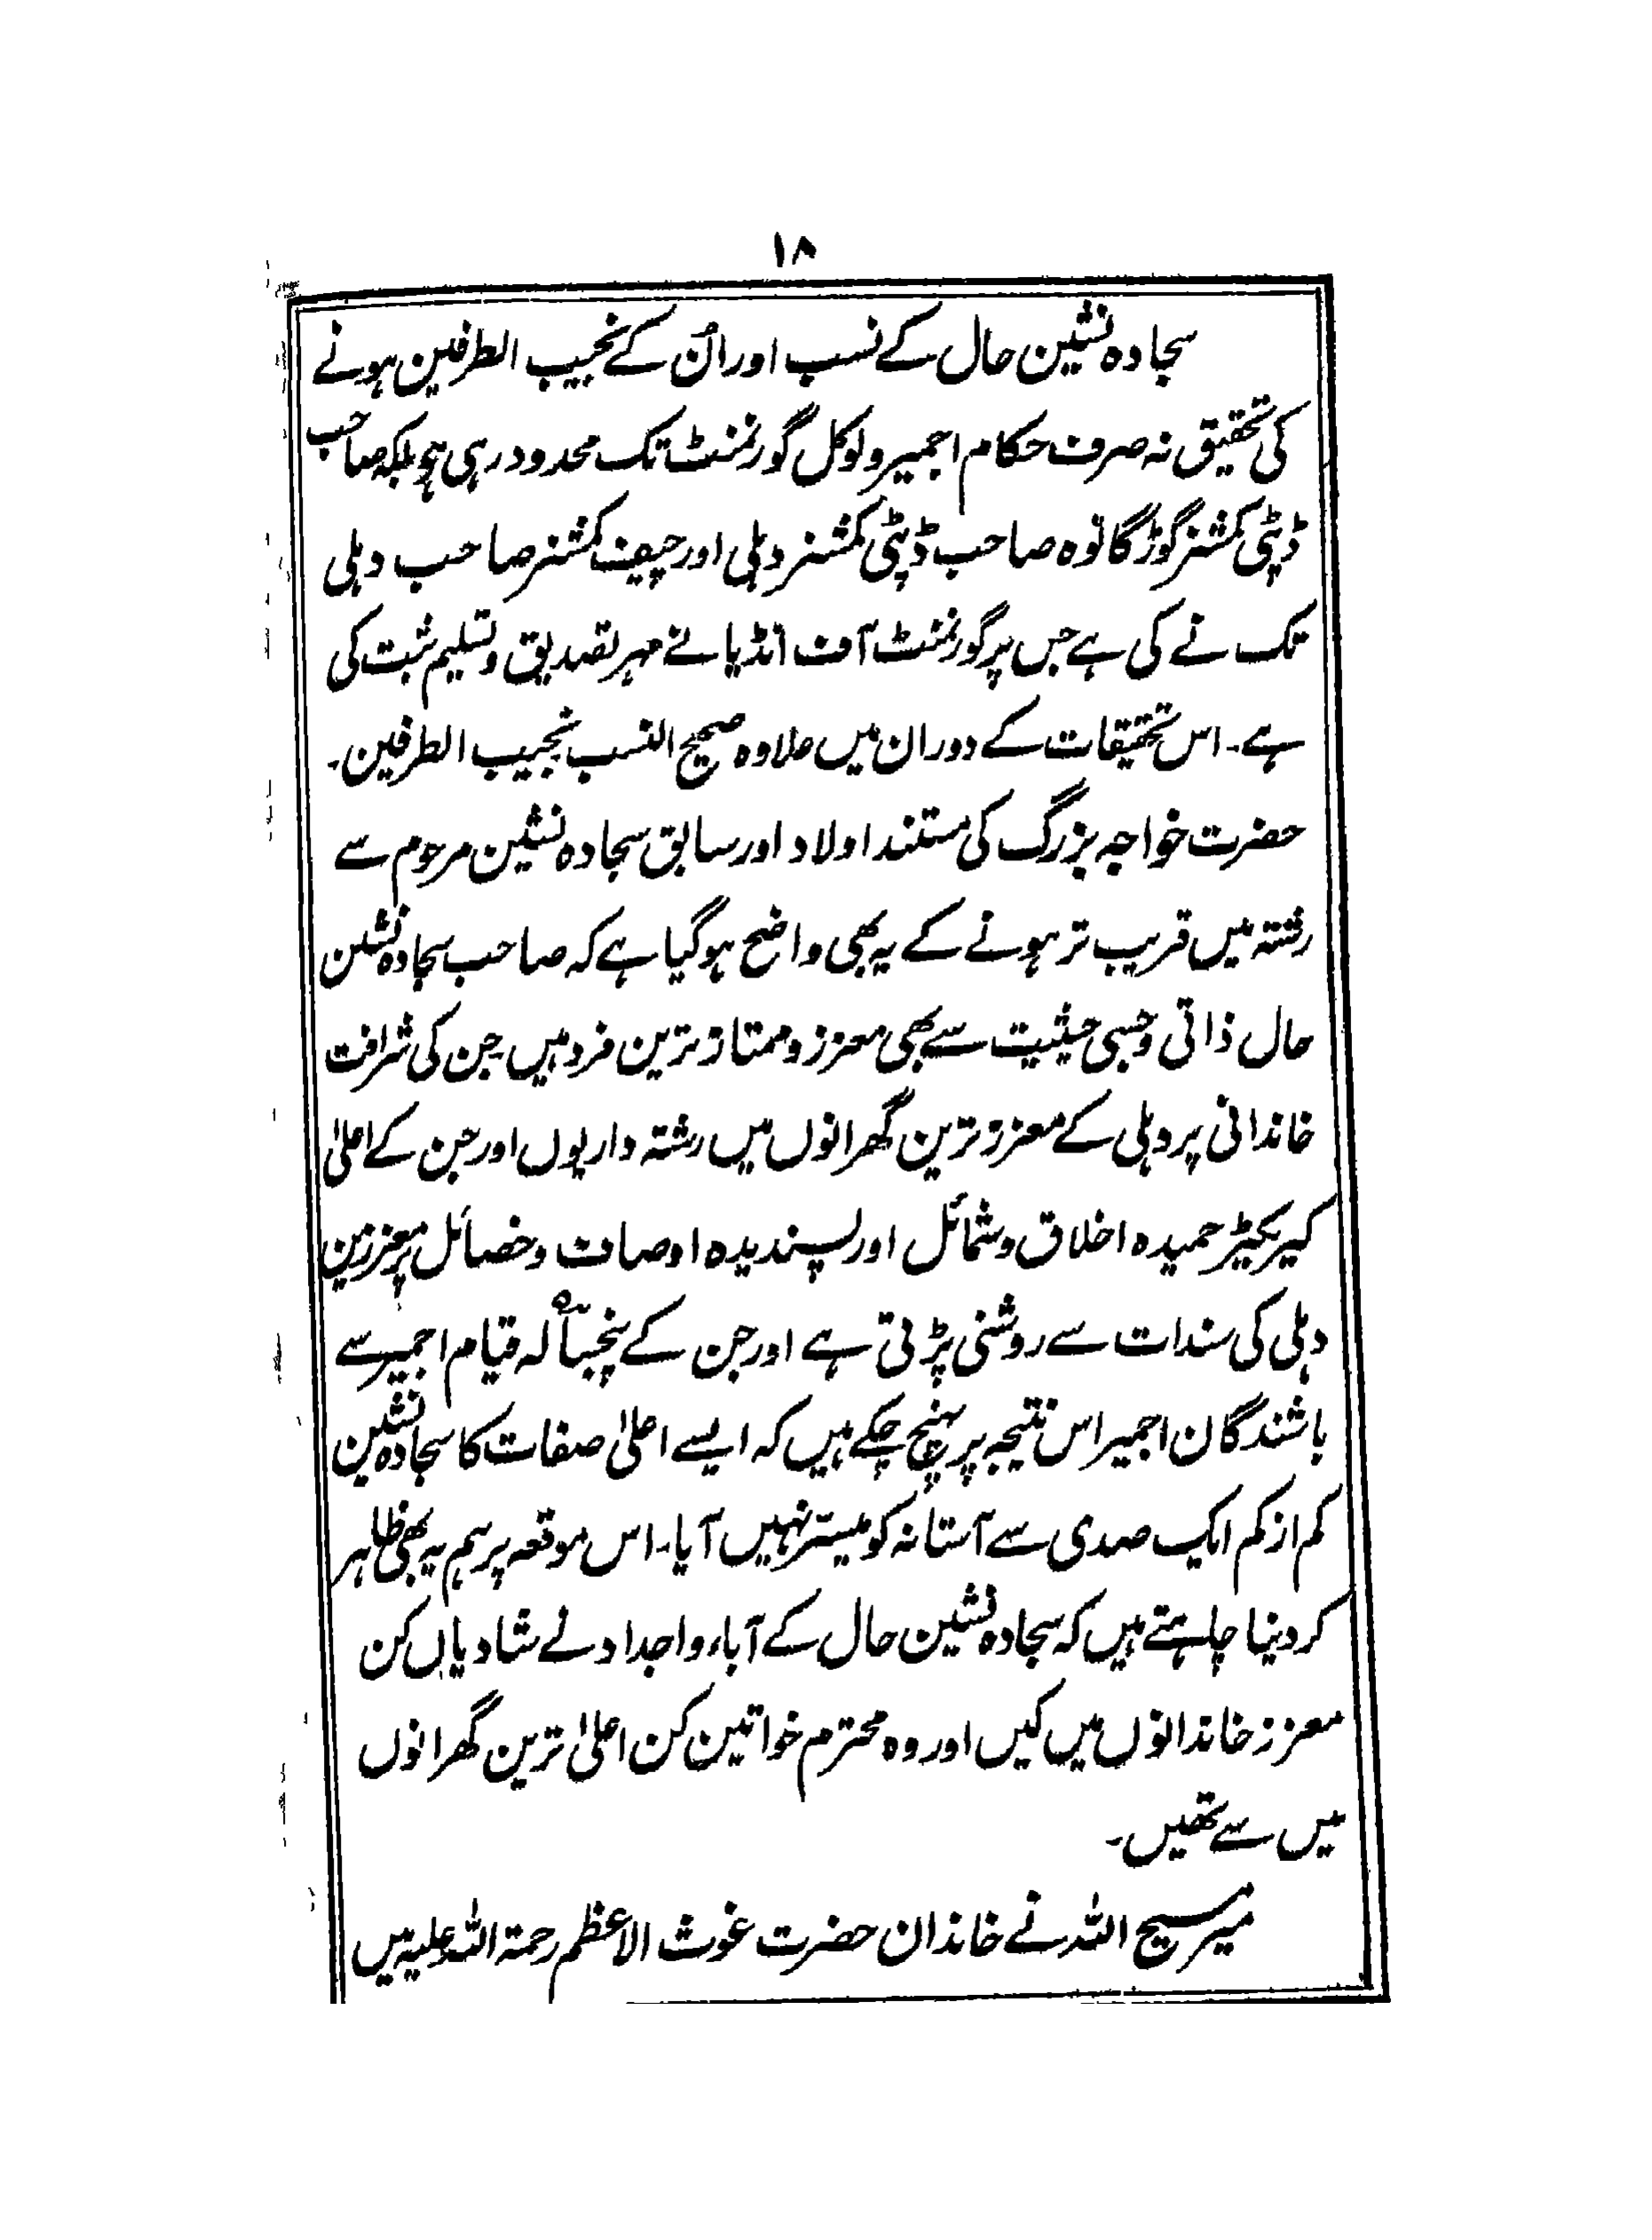 ۱۸
سجادہ نشین حال کے نسب اور اُن کے نجیب الطرفین ہونے
کی تحقیق نہ صرف حکام اجمیر و لوکل گورنمنٹ تک محدود رہی ہو بلکہ صاحب
ڈپٹی کمشنر گوڑگانوہ صاحب ڈپٹی کمشنر دہلی اور چیف کمشنر صاحب دہلی
تک نے کی ہے جس پر گورنمنٹ آف انڈیا نے مہر تصدیق و تسلیم ثبت کی
ہے۔ اس تحقیقات کے دوران میں علاوہ صحیح النسب نجیب الطرفین۔
حضرت خواجہ بزرگ کی مستند اولاد اور سابق سجادہ نشین مرحوم سے
رشتہ میں قریب تر ہونے کے یہ بھی واضح ہوگیا ہے کہ صاحب سجادہ نشین
حال ذاتی و حسبی حیثیت سے بھی معزز و ممتاز ترین فرد ہیں۔ جن کی شرافت
خاندانی پر دہلی کے معزز ترین گھرانوں میں رشتہ داریوں اور جن کے اعلیٰ
کیریکٹر حمیدہ اخلاق و شمائل اور پسندیدہ اوصاف و خصائل پر معززین
دہلی کی سندات سے روشنی پڑتی ہے اور جن کے پنجسالہ قیام اجمیر سے
باشندگان اجمیر اس نتیجہ پر پہنچ چکے ہیں کہ ایسے اعلیٰ صفات کا سجادہ نشین
کم از کم ایک صدی سے آستانہ کو میسّر نہیں آیا۔ اس موقعہ پر ہم یہ بھی ظاہر
کر دینا چاہتے ہیں کہ سجادہ نشین حال کے آباء و اجداد نے شادیاں کن
معزز خاندانوں میں کیں اور وہ محترم خواتین کن اعلیٰ ترین گھرانوں
میں سے تھیں۔
میر مسیح اللہ نے خاندان حضرت غوث الاعظم رحمۃ اللہ علیہ میں